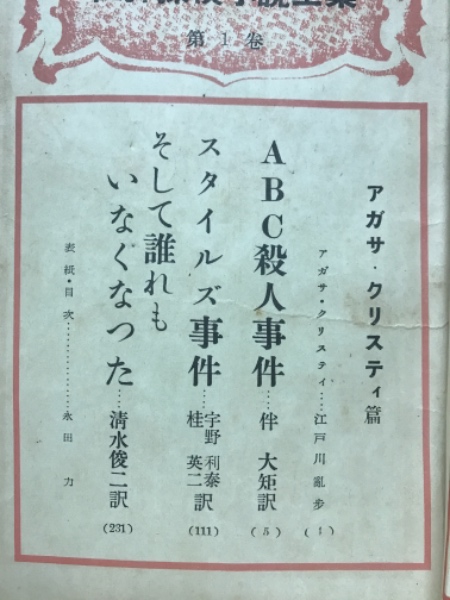 探偵小説全集
第1巻
アガサ・クリスティ篇
アガサ・クリスティ……江戸川亂歩(1)
ABC殺人事件……伴大矩訳(5)
スタイルズ事件……宇野利泰 桂英二訳(111)
そして誰れも
いなくなつた……清水俊二訳(231)
表紙・目次……………永田力